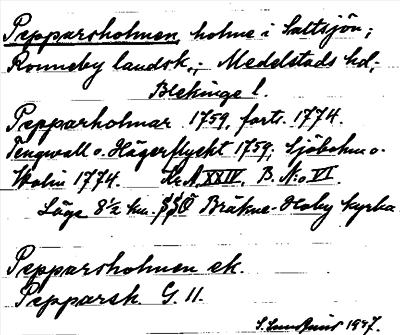 Pepparsholmen, holme i Saltsjön;
Ronneby landsk.; Medelstads hd;
Blekinge l.
Pepparholmar 1759, forts. 1774.
Tengwall o. Hägerflycht 1759, Sjöbohm o.
1774. Kr. A XXIV. B. N:o VI.
Läge 8½ km. SSÖ Bräkne-Hoby kyrka
Pepparsholmen ek.
Pepparsh. G. 11.
1927.